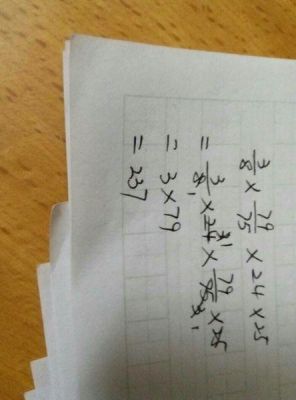 3/8 × 79/25 × 24 × 25
= 3/8 × 24 × 79/25 × 25
= 3 × 79
= 237